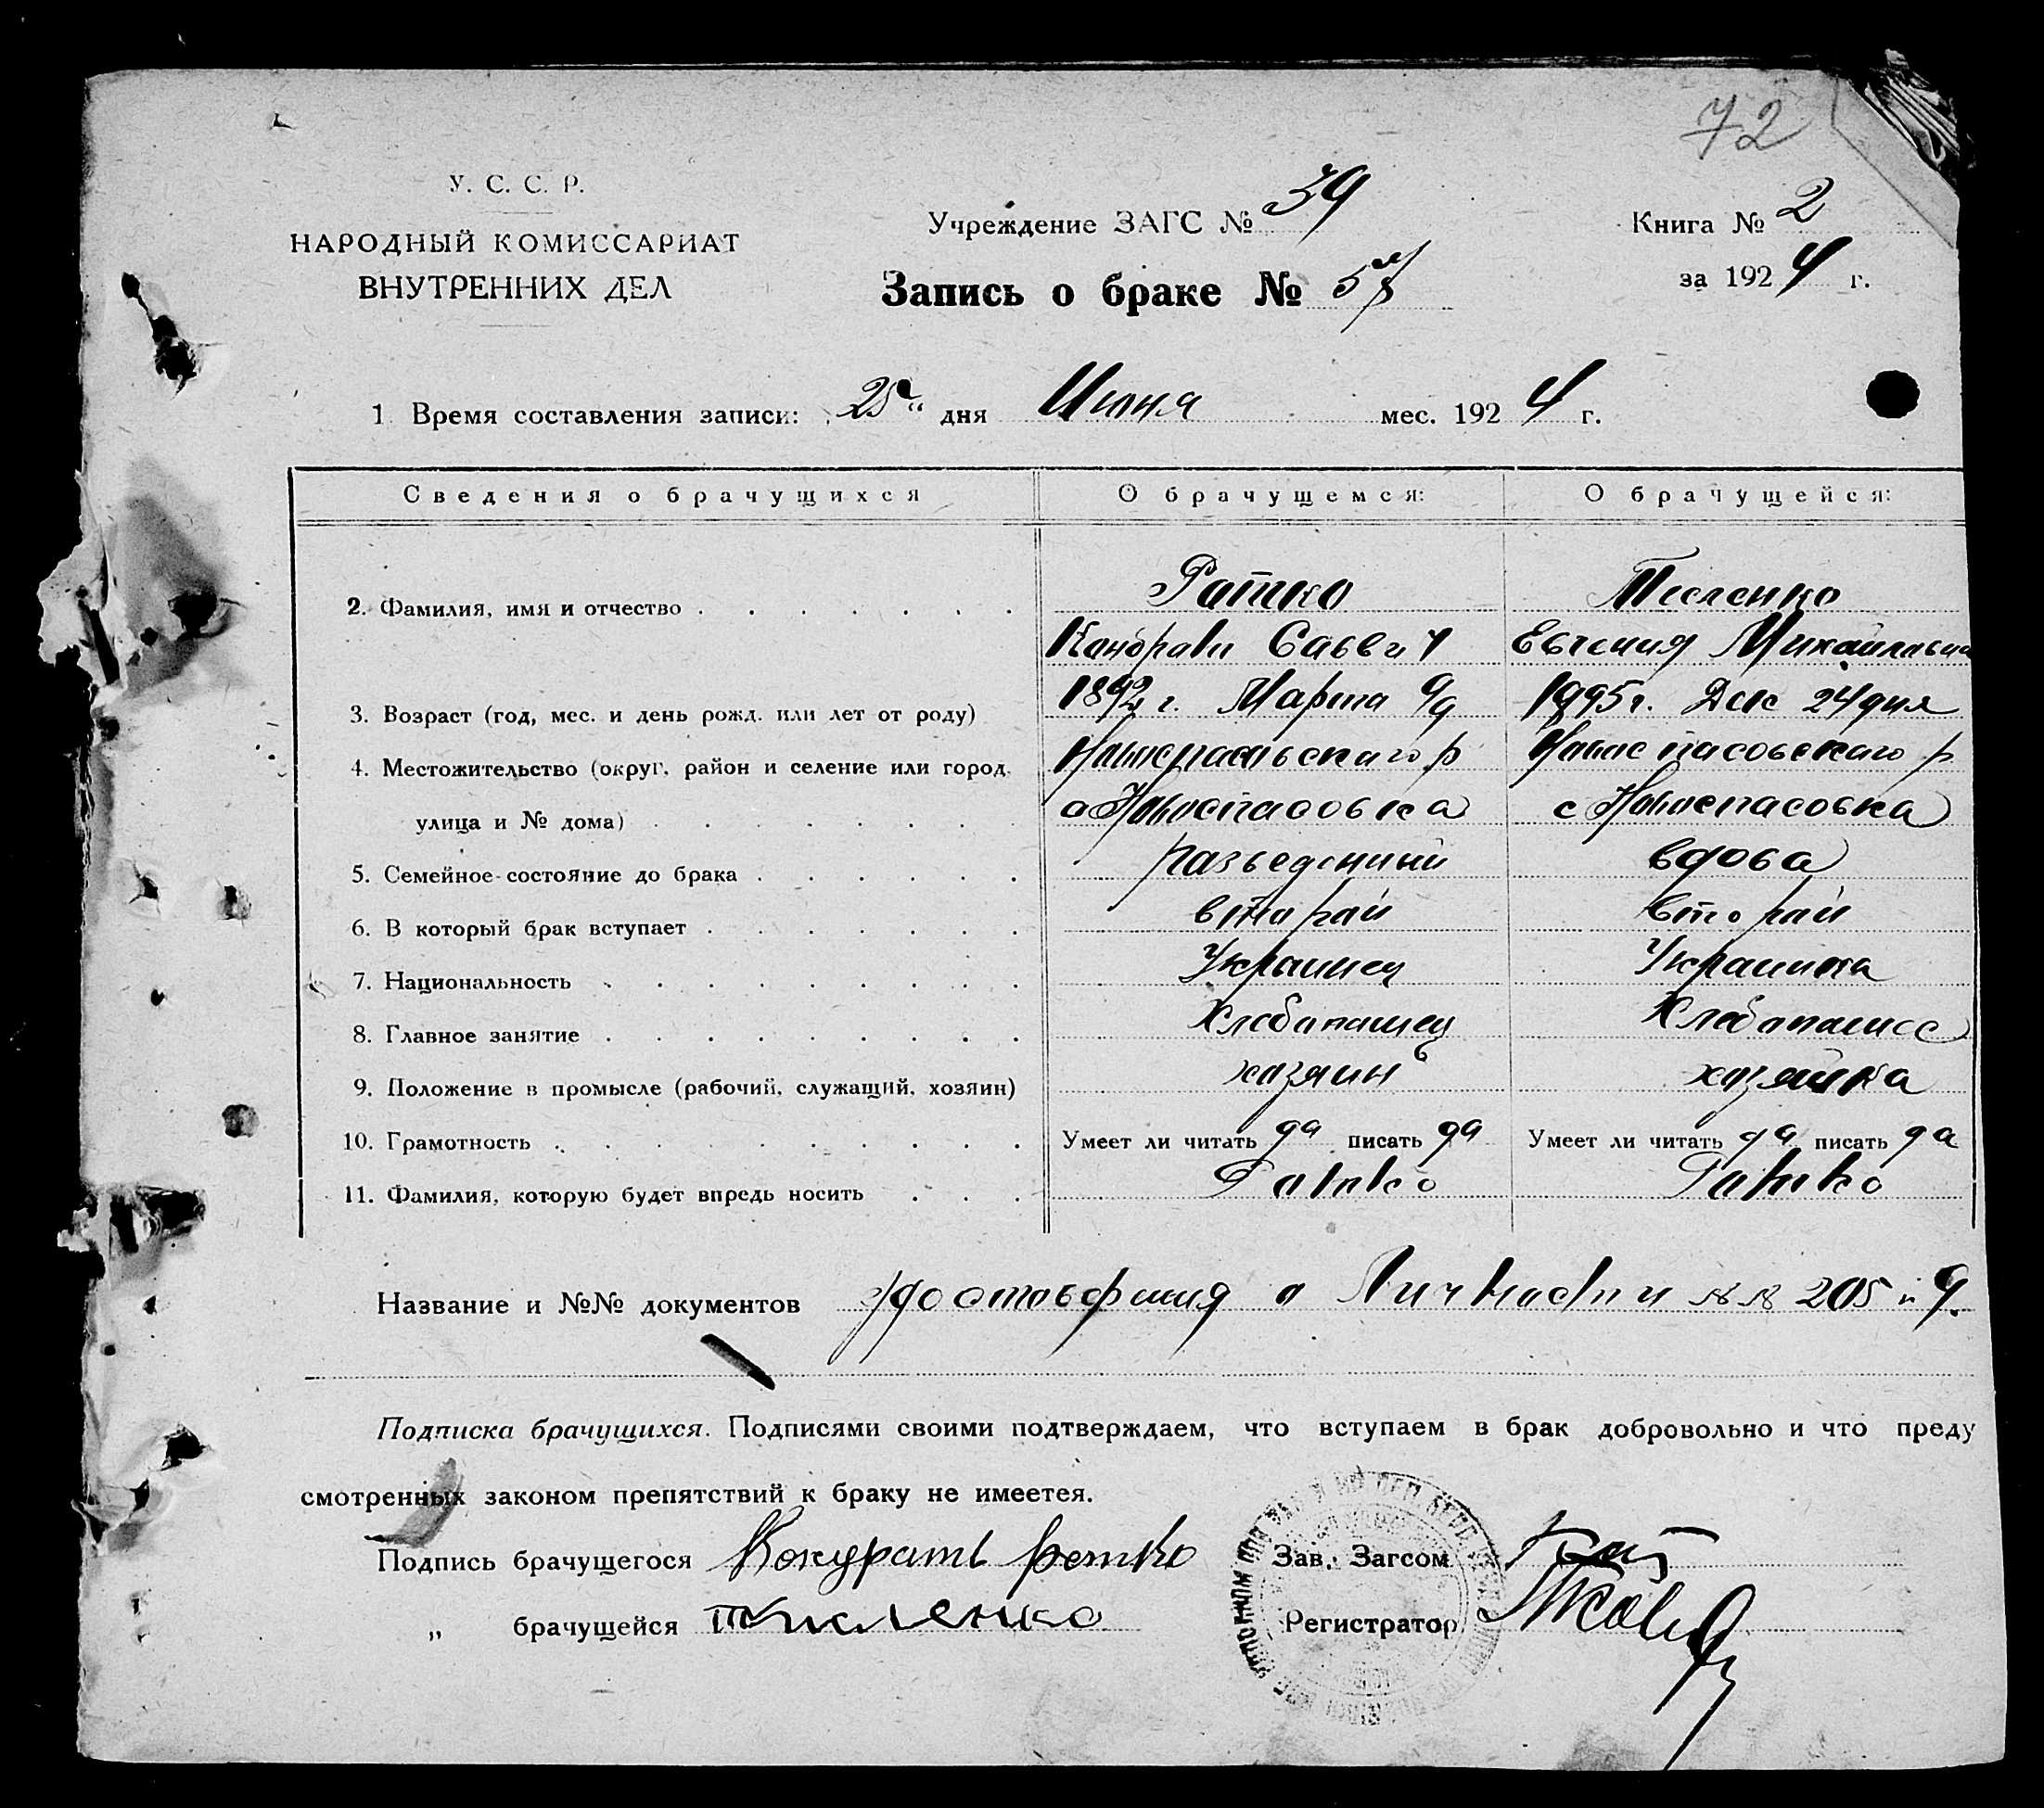 72
У. С. С. Р.
НАРОДНЫЙ КОМИССАРИАТ
ВНУТРЕННИХ ДЕЛ
Учреждение ЗАГС № 39
Запись о браке № 57
Книга № 2
за 1924 г.
1 Время составления записи: „25“ дня Июня мес. 1924 г.
Сведения о брачущихся О брачущемся: О брачущейся:
2. Фамилия, имя и отчество Ратко
Савви ч Евгения Михайловна
3. Возраст (год, мес. и день рожд. или лет от роду) 1892 г. Марта 9д 1895 г. Дек 24 дня
4. Местожительство (округ, район и селение или город, р Новоспасовскаго р
улица и № дома) с Новоспасовка с Новоспасовка
5. Семейное состояние до брака разведенный вдова
6. В который брак вступает вторай вторай
7. Национальность Украинец Украинка
8. Главное занятие Хлебопашец
9. Положение в промысле (рабочий, служащий, хозяин) хозяин хозяйка
10. Грамотность Умеет ли читать да писать да Умеет ли читать да писать да
11. Фамилия, которую будет впредь носить Ратко Ратко
Название и №№ документов о №№ 205 и 9.
Подписка брачущихся. Подписями своими подтверждаем, что вступаем в брак добровольно и что преду
смотренных законом препятствий к браку не имеетея.
Подпись брачущегося ратко Зав. Загсом
„ брачущейся Регистратор